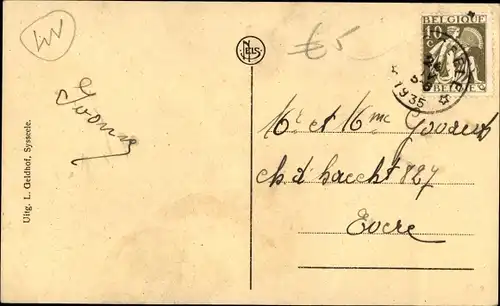 Uitg. L. Geldhof, Sysseele.
Yvonne
NELS
€5
BELGIQUE
10 c
BELGIE
1935
Mr et Mme
ch. d'haecht 827
Evere